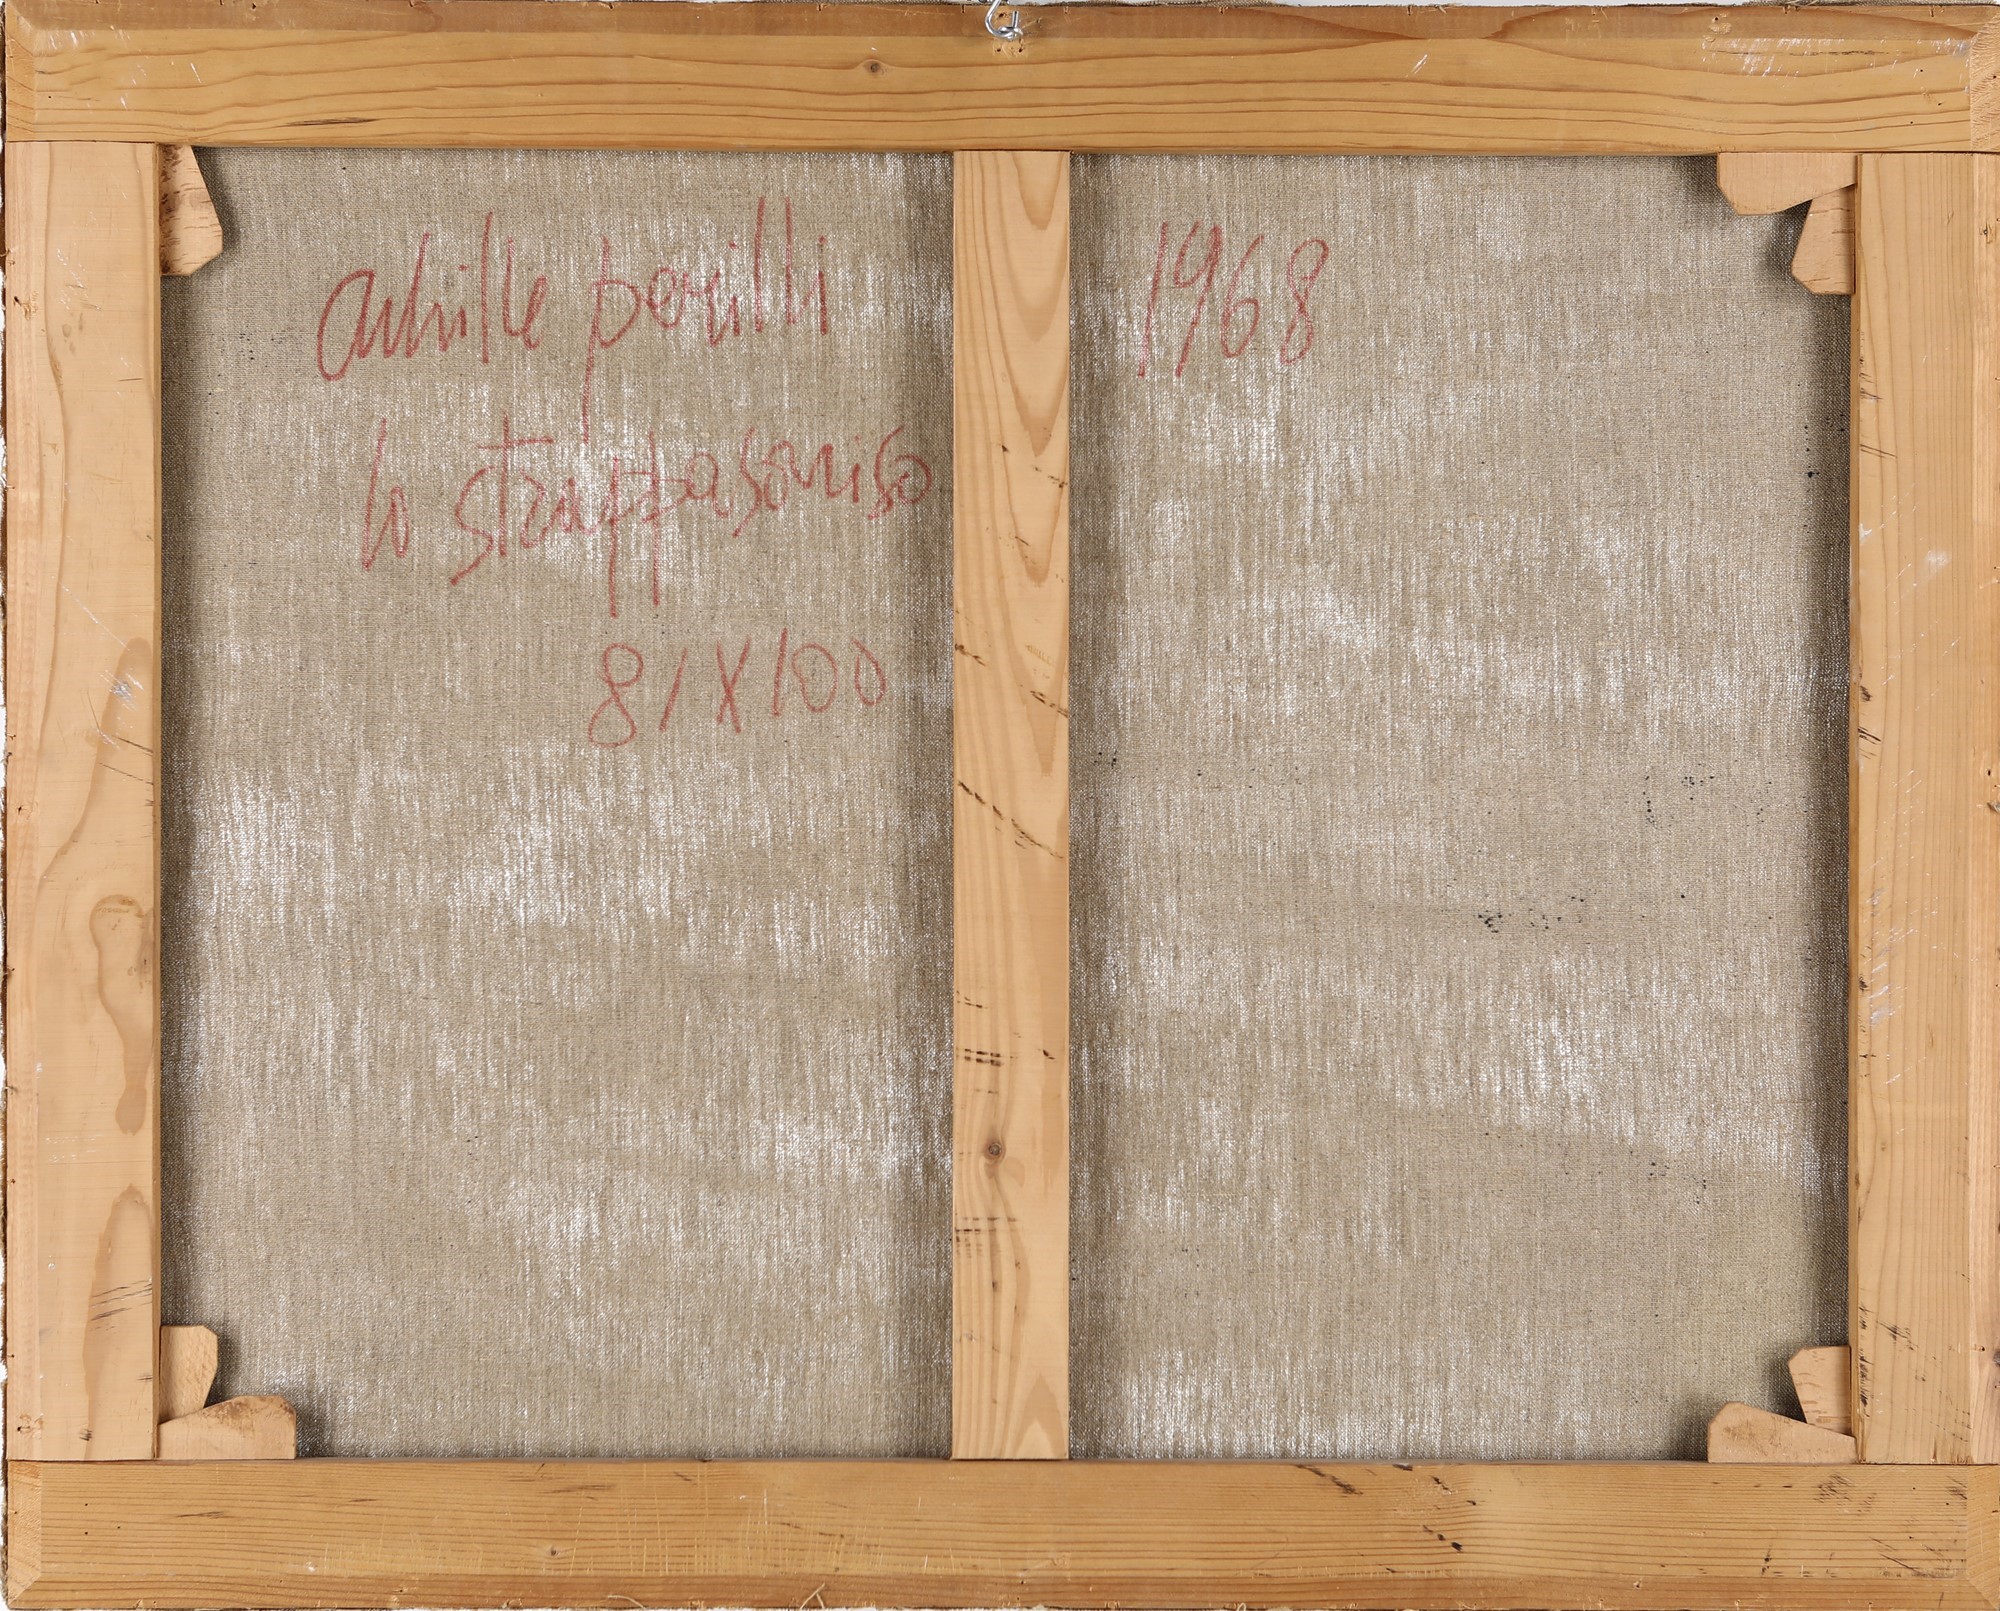 achille perilli 1968
lo strappasorriso
81X100